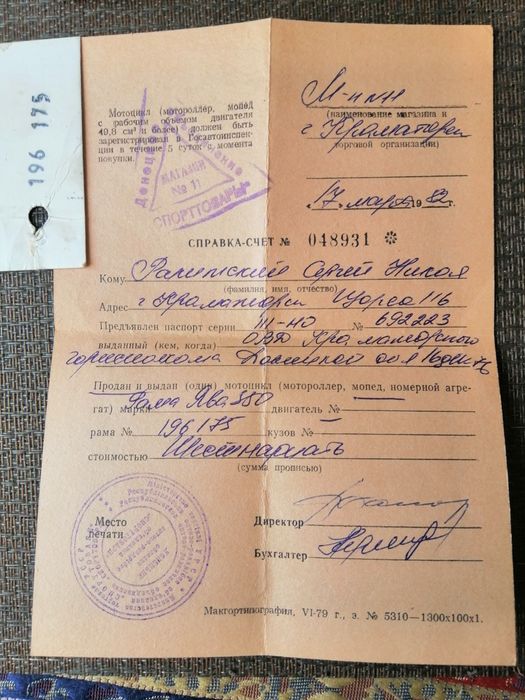 196 175
Мотоцикл (мотороллер, мопед
с рабочим объемом двигателя
49,8 см³ и более) должен быть
зарегистрирован в Госавтоинспек-
ции в течение 5 суток с момента
покупки.
МАГАЗИН
№ 11
СПОРТТОВАРЫ"
М-н №11
(наименование магазина и
г Краматорск
торговой организации)
17 марта 1982г.
СПРАВКА-СЧЕТ № 048931 ✻
Кому Сергей Никол
(фамилия, имя, отчество)
Адрес г Краматорск Щорса 116
Предъявлен паспорт серии III-НО № 692223
выданный (кем, когда) ОВД Краматорского
горисполкома Донецкой обл
Продан и выдан (один) мотоцикл (мотороллер, мопед, номерной агре-
гат) марки Рама Ява 350 двигатель № —
рама № 196175 кузов № —
стоимостью Шестнадцать
(сумма прописью)
Место
печати
Директор
Бухгалтер
Макгортипография, VI-79 г., з. № 5310—1300х100х1.